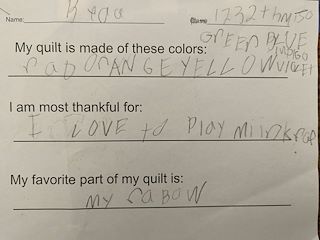 Name:
GREEN BLUE
My quilt is made of these colors:
INDIGO
VIOLET
rAD ORANGE YELLOW
I am most thankful for:
I LOVE to PlAY
My favorite part of my quilt is:
MY rABOW